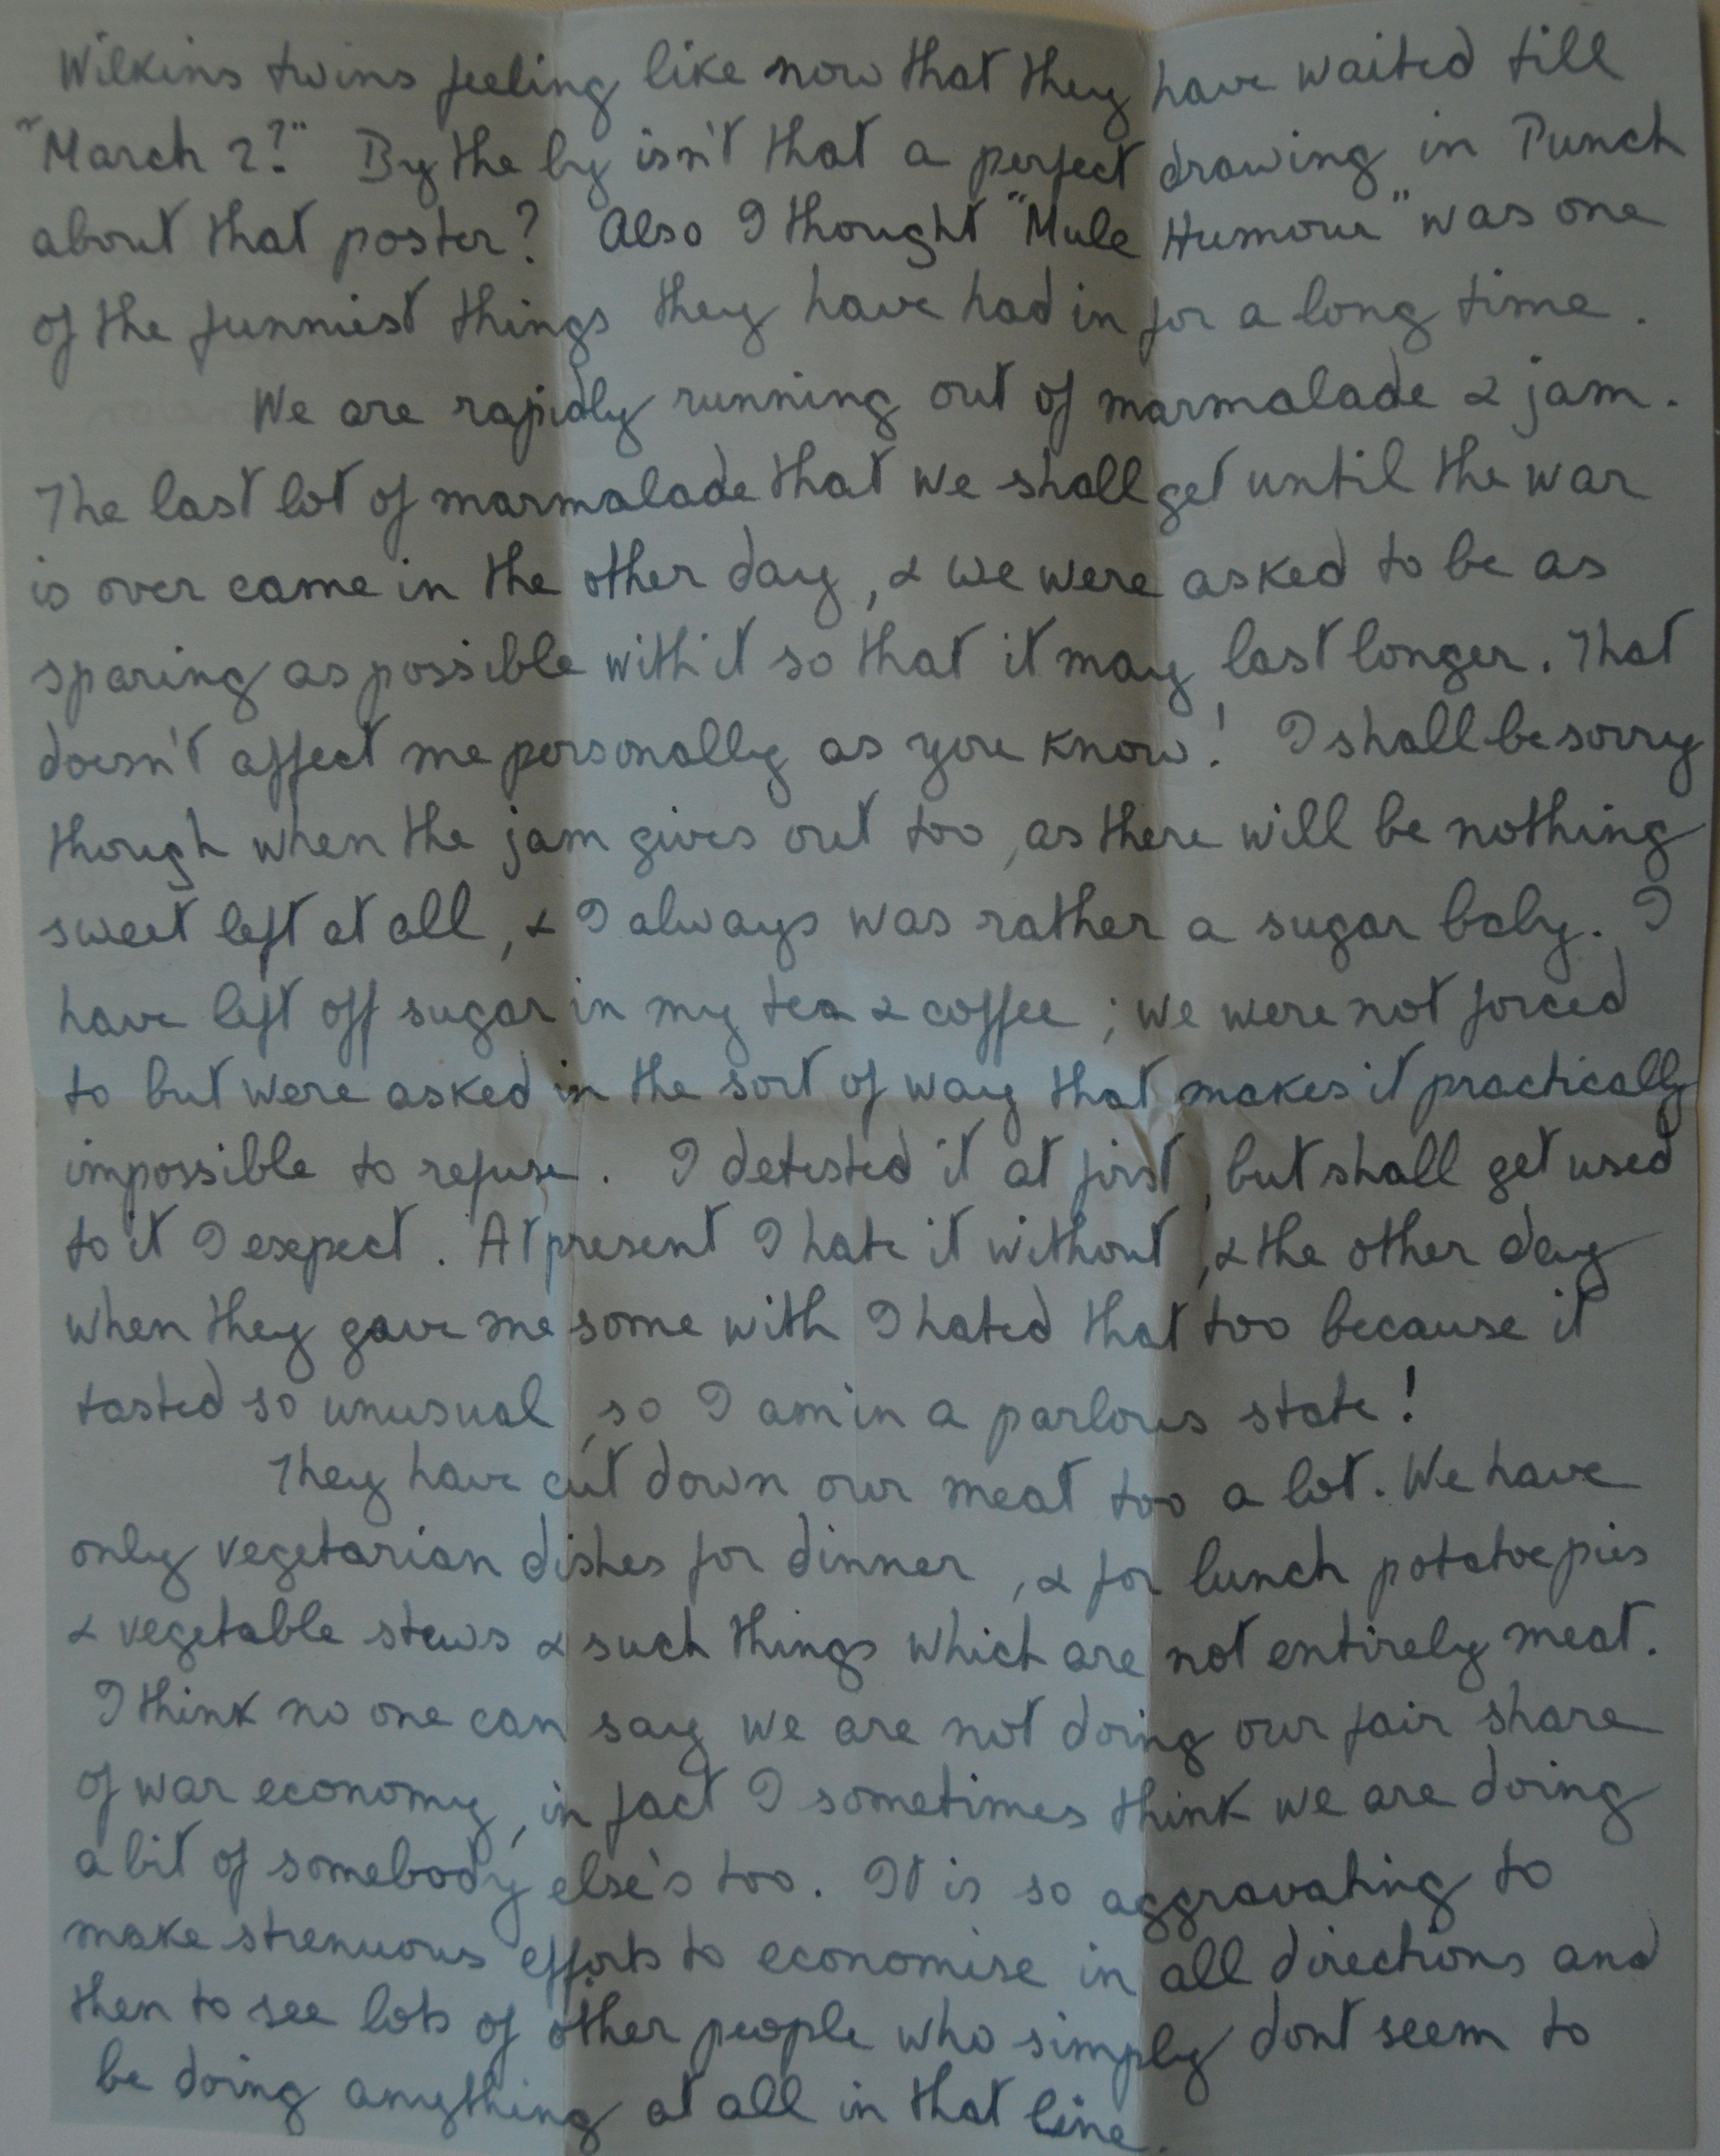 Wilkins twins feeling like now that they have waited till
"March 2?" By the by isn't that a perfect drawing in Punch
about that poster? Also I thought "Mule Humour" was one
of the funniest things they have had in for a long time.
We are rapidly running out of marmalade & jam.
The last lot of marmalade that we shall get until the war
is over came in the other day, & we were asked to be as
sparing as possible with it so that it may last longer. That
doesn't affect me personally as you know! I shall be sorry
though when the jam gives out too, as there will be nothing
sweet left at all, & I always was rather a sugar baby. I
have left off sugar in my tea & coffee; we were not forced
to but were asked in the sort of way that makes it practically
impossible to refuse. I detested it at first, but shall get used
to it I expect. At present I hate it without, & the other day
when they gave me some with I hated that too because it
tasted so unusual, so I am in a parlous state!
They have cut down our meat too a lot. We have
only vegetarian dishes for dinner, & for lunch potatoe pies
& vegetable stews & such things which are not entirely meat.
I think no one can say we are not doing our fair share
of war economy, in fact I sometimes think we are doing
a bit of somebody else's too. It is so aggravating to
make strenuous efforts to economise in all directions and
then to see lots of other people who simply dont seem to
be doing anything at all in that line.